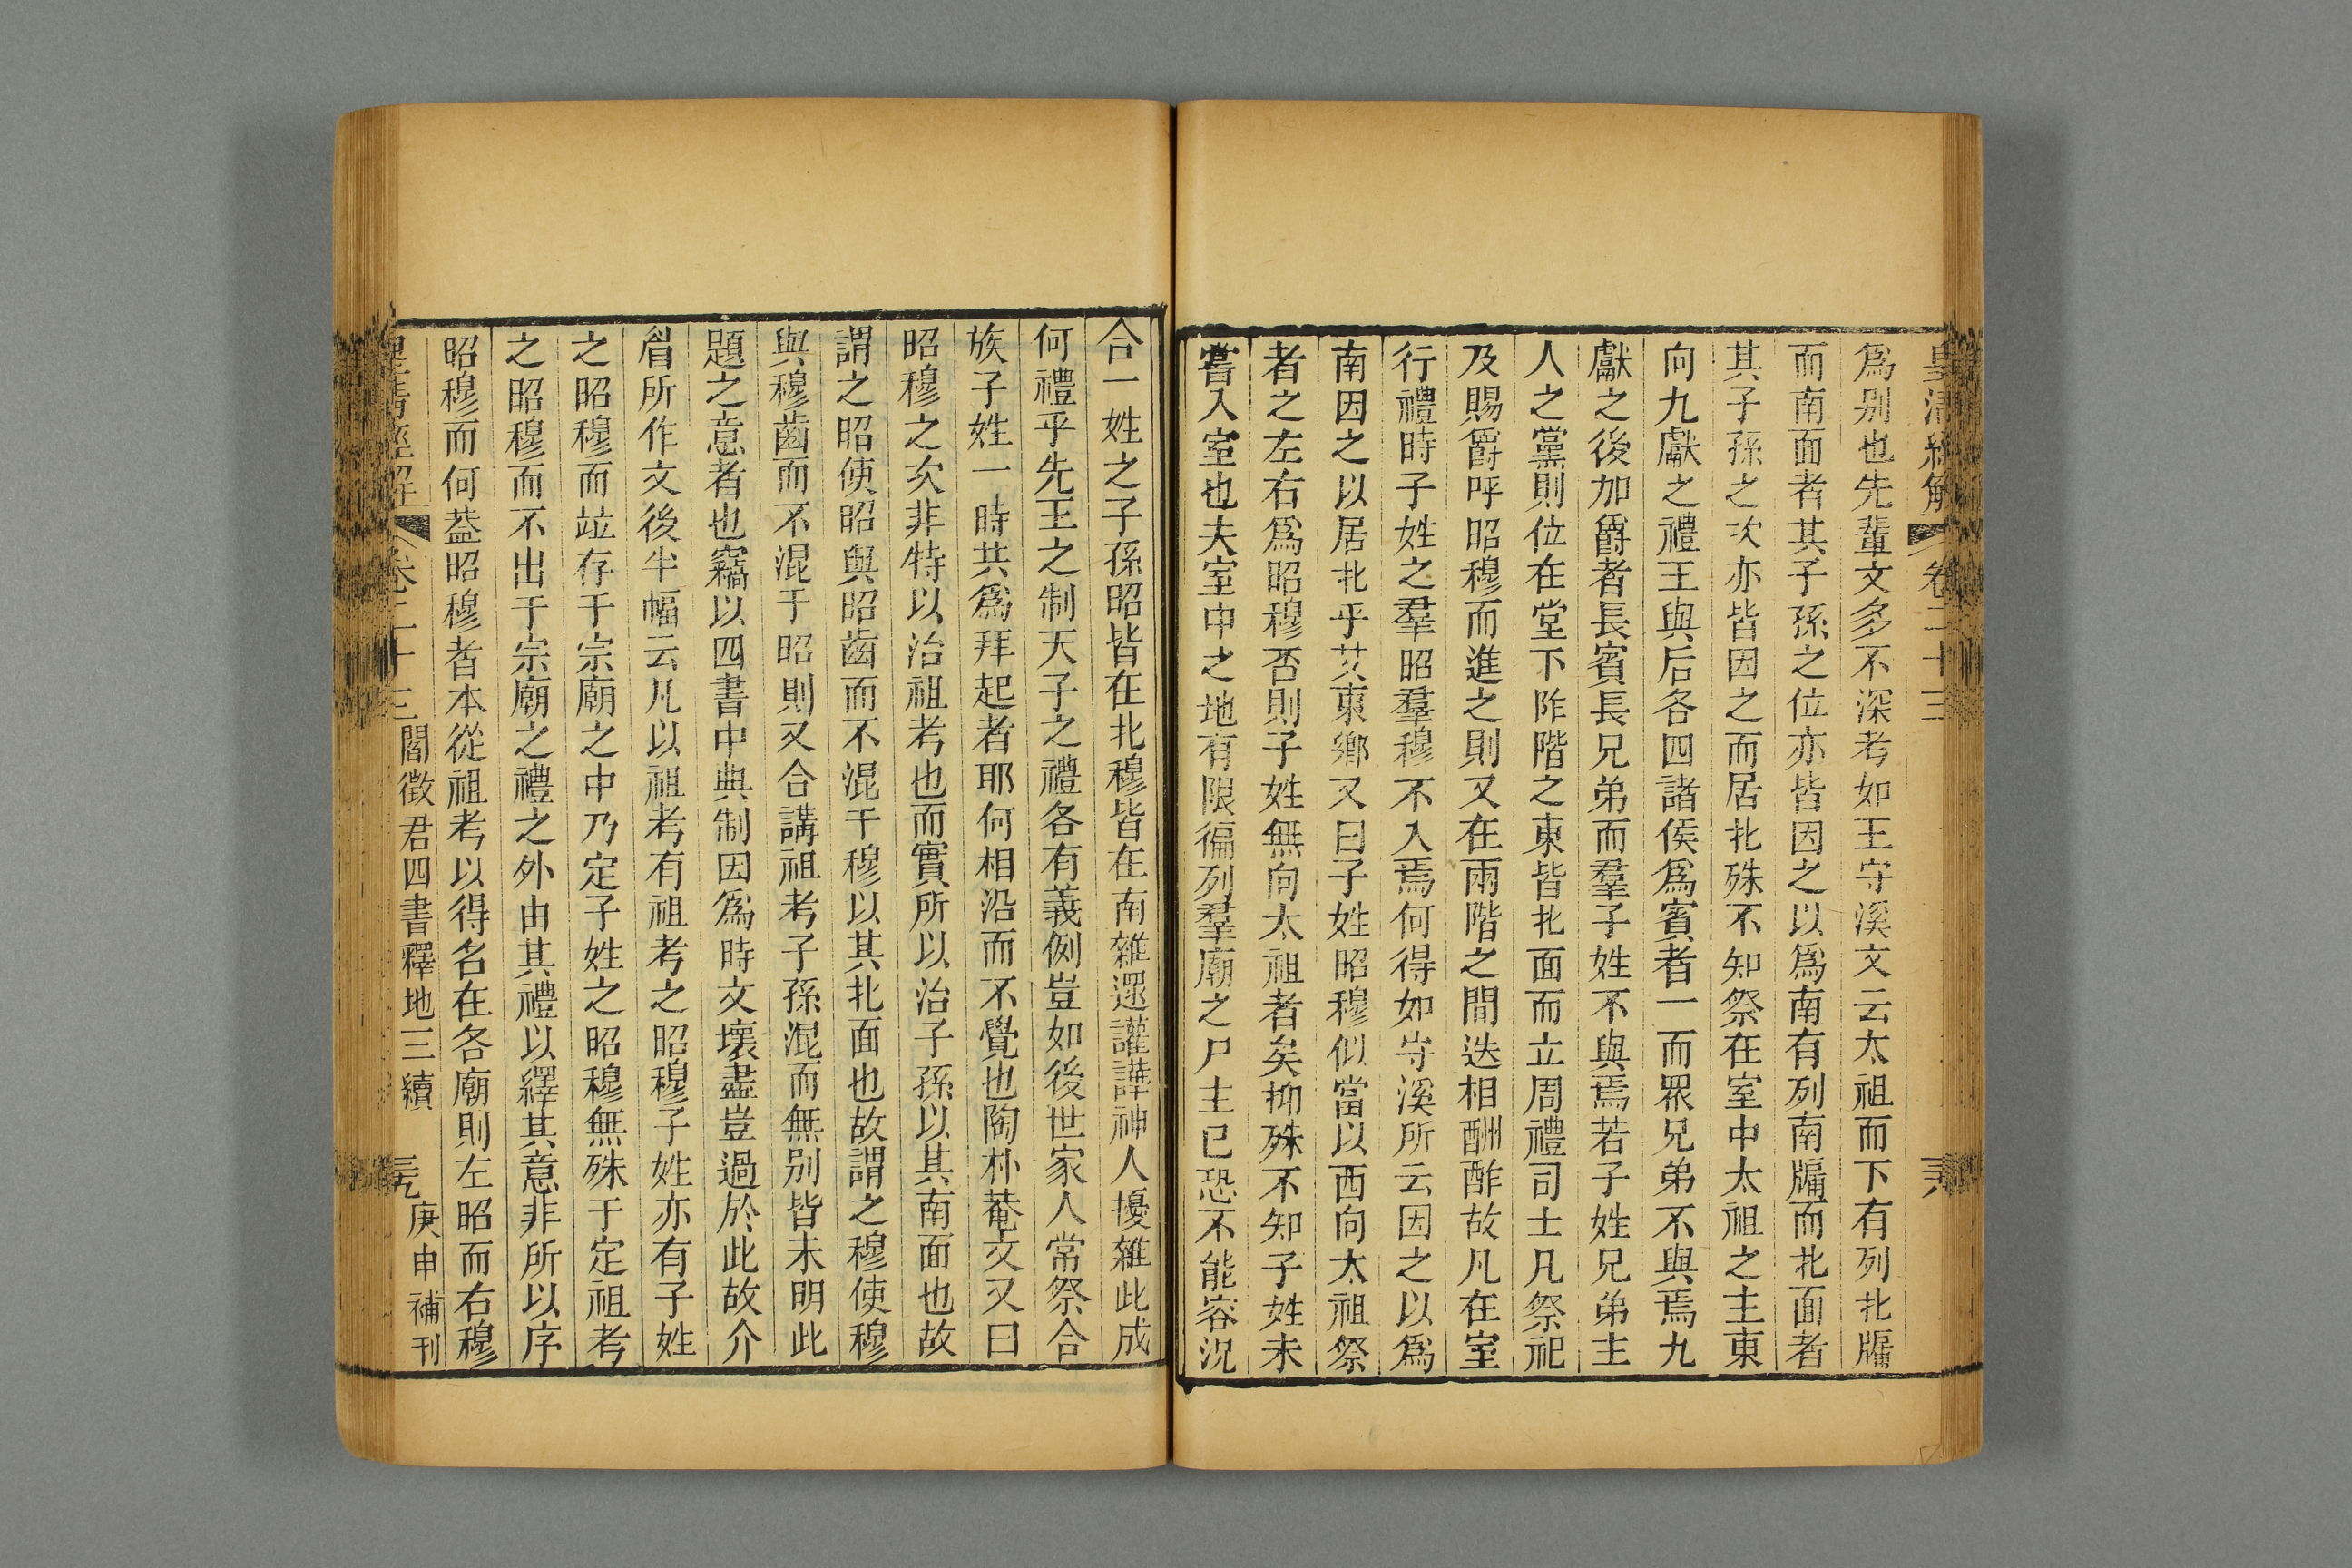 皇清經解 卷二十三 兲
爲别也先輩文多不深考如王守溪文云太祖而下有列北牖
而南面者其子孫之位亦皆因之以爲南有列南牖而北面者
其子孫之次亦皆因之而居北殊不知祭在室中太祖之主東
向九獻之禮王與后各四諸侯爲賓者一而眾兄弟不與焉九
獻之後加爵者長賓長兄弟而羣子姓不與焉若子姓兄弟主
人之黨則位在堂下阼階之東皆北面而立周禮司士凡祭祀
及賜爵呼昭穆而進之則又在兩階之間迭相酬酢故凡在室
行禮時子姓之羣昭羣穆不入焉何得如守溪所云因之以爲
南因之以居北乎艾東鄉又曰子姓昭穆似當以西向太祖祭
者之左右爲昭穆否則子姓無向太祖者矣抑殊不知子姓未
嘗入室也夫室中之地有限徧列羣廟之尸主已恐不能容況
合一姓之子孫昭皆在北穆皆在南雜遝讙譁神人擾雜此成
何禮乎先王之制天子之禮各有義例豈如後世家人常祭合
族子姓一時共爲拜起者耶何相沿而不覺也陶朴菴文又曰
昭穆之次非特以治祖考也而實所以治子孫以其南面也故
謂之昭使昭與昭齒而不混于穆以其北面也故謂之穆使穆
與穆齒而不混于昭則又合講祖考子孫混而無别皆未明此
題之意者也竊以四書中典制因爲時文壞盡豈過於此故介
眉所作文後半幅云凡以祖考有祖考之昭穆子姓亦有子姓
之昭穆而竝存于宗廟之中乃定子姓之昭穆無殊于定祖考
之昭穆而不出于宗廟之禮之外由其禮以繹其意非所以序
昭穆而何葢昭穆者本從祖考以得名在各廟則左昭而右穆
皇清經解 卷二十三 閻徵君四書釋地三續 庚申補刊